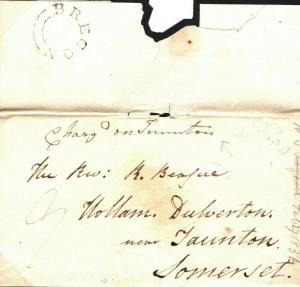 BRECON
Charg^d on Taunton
The Rev: R. Beague
Hollam. Dulverton.
near Taunton.
Somerset.